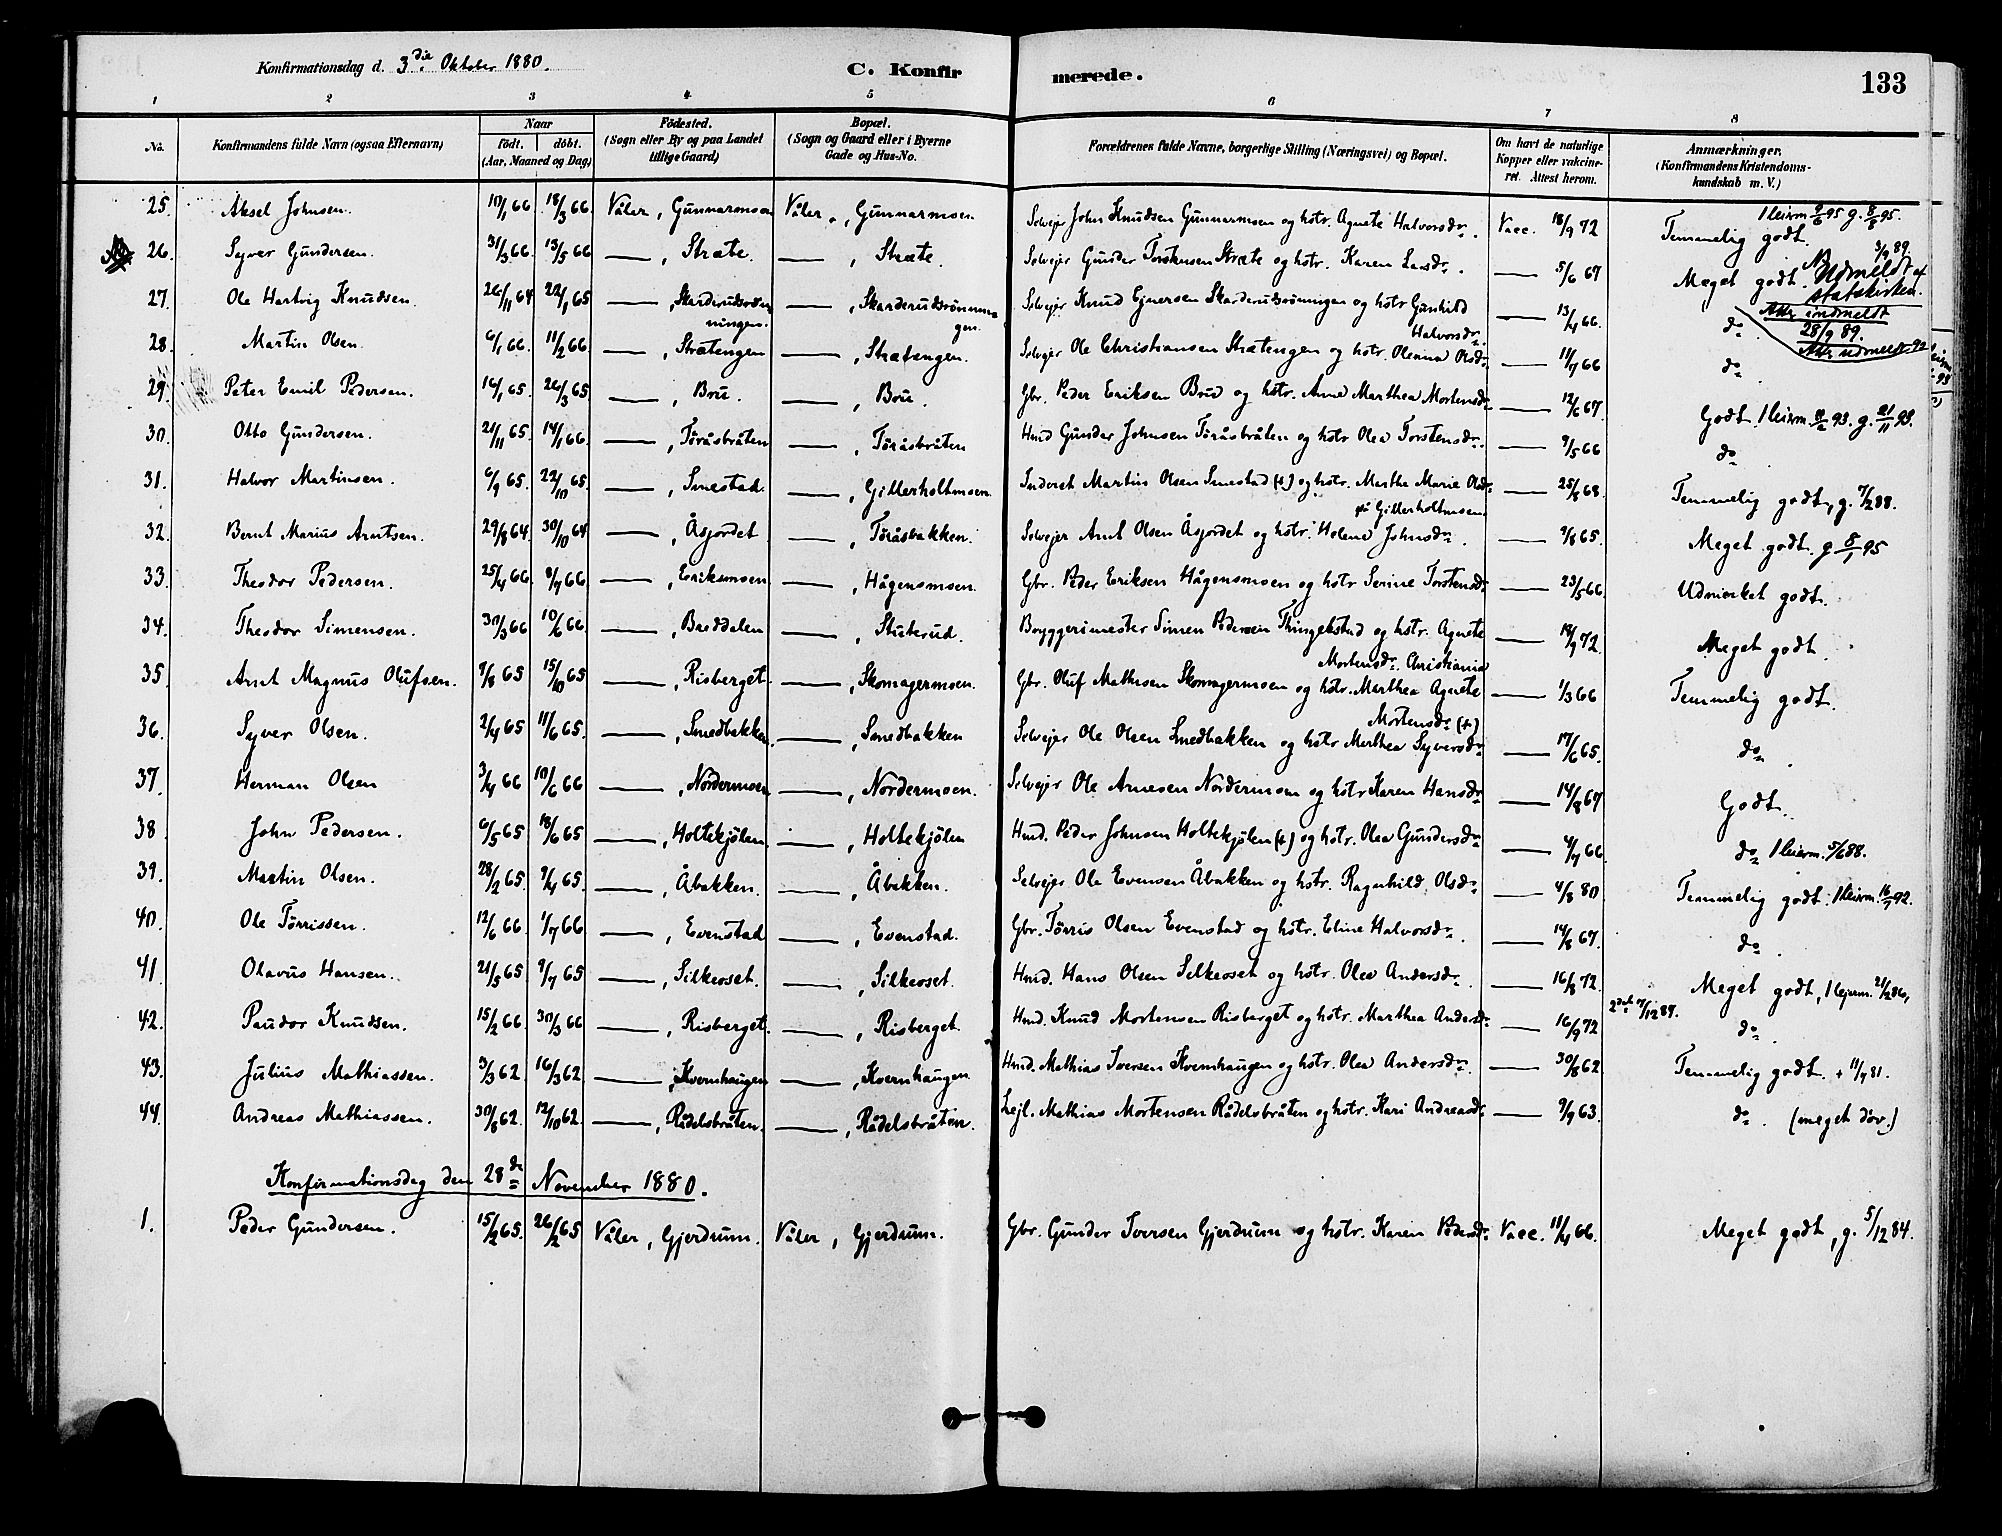 Konfirmationsdag d. 3die Oktober 1880.
C. Konfirmerede.
133
1 2 3 4 5 6 7 8
No. Konfirmandens fulde Navn (ogsaa Efternavn) Naar födt. döbt. (Aar, Maaned og Dag) Födested. (Sogn eller By og paa Landet tillige Gaard) Bopæl. (Sogn og Gaard eller i Byerne Gade og Hus-No. Forældrenes fulde Navne, borgerlige Stilling (Næringsvei) og Bopæl. Om havt de naturlige Kopper eller vakcineret. Attest herom. Anmærkninger. (Konfirmandens Kristendomskundskab m. V.)
25. Aksel Johnsen. 10/1 66 18/3 66. Våler, Gunnarmoen Våler, Gunnarmoen Selvejer John Knudsen Gunnarmoen og hstr. Agnete Halvorsdr. Vacc. 18/9 72 Temmelig godt. 1 leierm 9/6 95 g. 8/9 95.
26. Syver Gundersen. 31/3 66 13/5 66 —, Stræte. —, Stræte. Selvejer Gunder Torstensen Stræte og hstr. Karen Larsdr. — 5/6 67 Meget godt. NB 3/9 89. Udmeldt af statskirken. Atter indmeldt 28/9 89. Atter udmeldt 92
27. Ole Hartvig Knudsen. 26/11 64 22/1 65 —, Skarderudsrønningen. —, Skarderudsrønningen. Selvejer Knud Ejnersen Skarderudsrønningen og hstr Gunhild Halvorsdr. — 13/4 66. do
28. Martin Olsen. 6/1 66. 11/2 66. —, Strætengen —, Strætengen. Selvejer Ole Christiansen Strætengen og hstr. Oleana Olsdr. — 11/7 66 do
29. Peter Emil Pedersen. 16/1 65. 26/3 65 —, Brü. —, Brü. Gbr. Peder Eriksen Brüd og hstr. Anne Marthea Mortensdr — 12/6 67. Godt. 1 leierm. 93. g. 21/11 93.
30. Otto Gundersen. 21/11 65. 14/1 66. —, Toråsbråten —, Toråsbråten Hmd Gunder Johnsen Toråsbråten og hstr Olea Torstensdr. — 9/5 66 do
31. Halvor Martinsen. 6/9 65. 22/10 65. —, Smestad. —, Gillerholtmoen. Inderst Martin Olsen Smestad (+) og hstr. Marthe Marie Olsdr på Gillerholtmoen — 25/8 68 Temmelig godt, g. 7/2 88.
32. Bernt Marius Arntsen. 29/8 64 30/10 64 —, Åsjordet —, Toråsbakken. Selvejer Arnt Olsen Åsjordet og hstr. Helene Johnsdr. — 9/8 65. Meget godt. g 8/9 95
33. Theodor Pedersen. 25/4 66. 8/7 66 —, Eriksmoen —, Hågensmoen. Gbr. Peder Eriksen Hågensmoen og hstr Serine Torstensdr — 23/5 66. Udmerket godt.
34. Theodor Simensen. 30/3 66 10/6 66 —, Breddalen —, Stuterud. Bryggerimester Simen Pedersen Thingelstad og hstr. Agnete Mortensdr. Christiania — 14/9 72. Meget godt.
35. Arnt Magnus Olufsen. 9/8 65 15/10 65 —, Risberget. —, Skomagermoen. Gbr. Oluf Mathisen Skomagermoen og hstr. Marthea Agnete Mortensdr (+) — 1/3 66 Temmelig godt.
36. Syver Olsen. 2/4 65 11/6 65. —, Smedbakken. —, Smedbakken Selvejer Ole Olsen Smedbakken og hstr Marthea Syversdr — 17/6 65. do.
37. Herman Olsen 3/4 66 10/6 66 —, Nordermoen —, Nordermoen. Selvejer Ole Arnesen Nordermoen og hstr Karen Hansdr — 14/8 67 Godt.
38. John Pedersen. 6/5 65 18/6 65 —, Holtekjølen —, Holtekjølen Hmd. Peder Johnsen Holtekjølen (+) og hstr. Olea Gundersdr — 4/7 66 do 1 leierm. 5/6 88.
39. Martin Olsen. 28/2 65. 9/4 65. —, Åbakken. —, Åbakken. Selvejer Ole Evensen Åbakken og hstr. Ragnhild Olsdr — 4/8 80 Temmelig godt. 1 leierm. 16/7 92.
40. Ole Tørrissen. 12/6 66. 1/7 66 —, Evenstad —, Evenstad. Gbr. Tørris Olsen Evenstad og hstr. Eline Halvorsdr. — 14/8 67. do.
41. Olavus Hansen. 21/5 65 9/7 65 —, Silkeoset. —, Silkeoset. Hmd. Hans Olsen Silkeoset og hstr. Olea Andersdr. — 16/8 72. Meget godt, 1 lejerm. 21/12 86, 2det 7/12 87.
42. Paudor Knudsen. 15/2 66 30/3 66 —, Risberget. —, Risberget. Hmd. Knud Mortensen Risberget og hstr. Marthea Andersdr — 16/9 72 do.
43. Julius Mathiassen. 3/3 62 16/3 62 —, Kvernhaugen —, Kvernhaugen Hmd. Mathias Iversen Kvernhaugen og hstr. Olea Andersdr. — 30/8 62 Temmelig godt. + 11/7 81.
44. Andreas Mathiassen. 30/8 62. 12/10 62. —, Rådelsbråten. —, Rådelsbråten. Lejl. Mathias Mortensen Rådelsbråten og hstr. Kari Andreasdr — 9/9 63. do. (meget døv.)
Konfirmationsdag den 28de November 1880.
1. Peder Gundersen. 15/2 65. 26/2 65 Våler, Gjerdrum. Våler, Gjerdrum. Gbr. Gunder Iversen Gjerdrum og hstr. Karen Pedersdr Vacc. 11/4 66. Meget godt, g. 5/12 84.